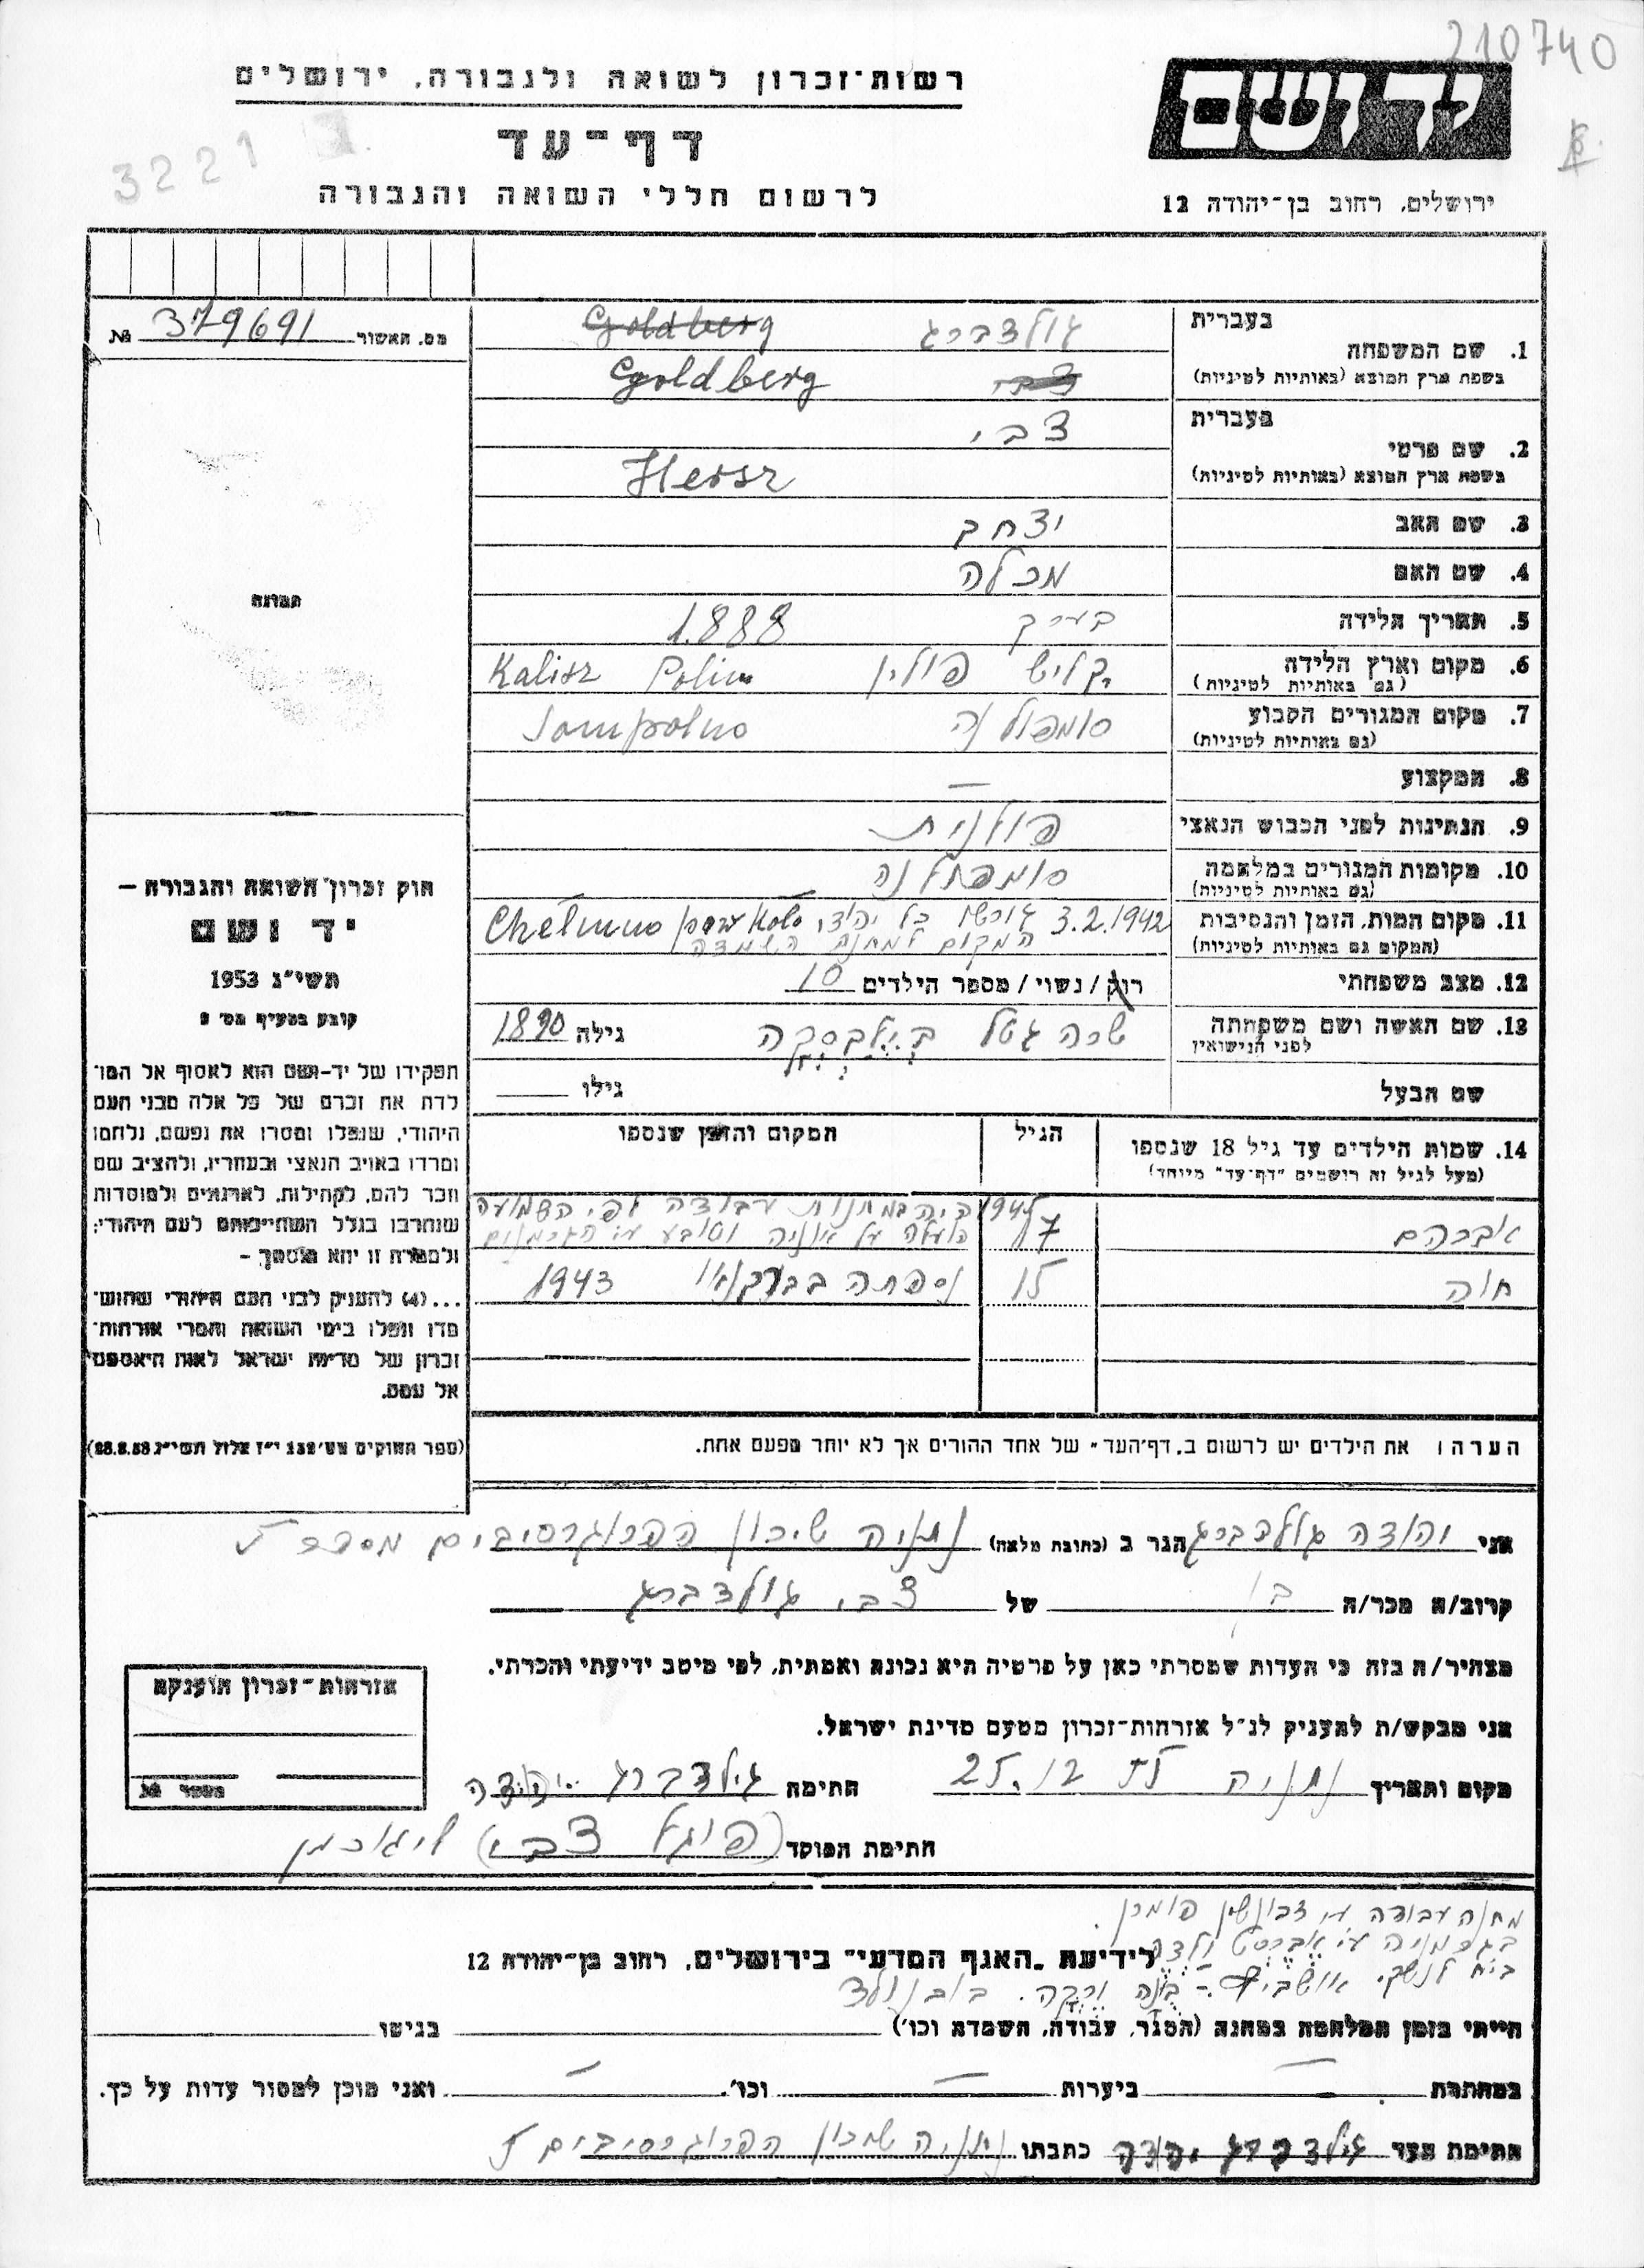 210740
יד ושם
ירושלים, רחוב בן־יהודה 12
רשות־זכרון לשואה ולגבורה, ירושלים
דף־עד
לרשום חללי השואה והגבורה
3221
מס. האשור 379691 №
תמונה
חוק זכרון השואה והגבורה –
יד ושם
תשי״ג 1953
קובע בסעיף מס׳ 2
תפקידו של יד-ושם הוא לאסוף אל המו־
לדת את זכרם של כל אלה מבני העם
היהודי, שנפלו ומסרו את נפשם, נלחמו
ומרדו באויב הנאצי ובעוזריו, ולהציב שם
וזכר להם, לקהילות, לארגונים ולמוסדות
שנחרבו בגלל השתייכותם לעם היהודי;
ולמטרה זו יהא מוסמך –
...(4) להעניק לבני העם היהודי שהוש־
מדו ונפלו בימי השואה והמרי אזרחות־
זכרון של מדינת ישראל לאות היאספם
אל עמם.
(ספר החוקים מס׳ 132 י״ז אלול תשי״ג 28.8.53)
בעברית גולדברג Goldberg
1. שם המשפחה
בשפת ארץ המוצא (באותיות לטיניות) צבי Goldberg
בעברית צבי
2. שם פרטי
בשפת ארץ המוצא (באותיות לטיניות) Hersz
3. שם האב יצחק
4. שם האם מכלה
5. תאריך הלידה בערך 1888
6. מקום וארץ הלידה קליש פולין Kalisz Polin
(גם באותיות לטיניות)
7. מקום המגורים הקבוע סומפולנה Sompolno
(גם באותיות לטיניות)
8. המקצוע —
9. הנתינות לפני הכבוש הנאצי פולנית
10. מקומות המגורים במלחמה סומפולנה
(גם באותיות לטיניות)
11. מקום המות, הזמן והנסיבות 3.2.1942 גורשו כל יהודי Chelmno pow Kolo
(המקום גם באותיות לטיניות) המקום למחנה השמדה
12. מצב משפחתי רוק / נשוי / מספר הילדים 10
13. שם האשה ושם משפחתה שרה גטל גילה 1890
לפני הנישואין
שם הבעל גילו
14. שמות הילדים עד גיל 18 שנספו הגיל המקום והזמן שנספו
(מעל לגיל זה רושמים ״דף־עד״ מיוחד)
אברהם 17 1945 היה במחנות עבודה לפי השמועה
הועלה על אוניה וטובע ע״י הגרמנים
חוה 15 נספתה בבירקנאו 1943
הערה: את הילדים יש לרשום ב„דף־העד״ של אחד ההורים אך לא יותר מפעם אחת.
אני יהודה גולדברג הגר ב (כתובת מלאה) נתניה שיכון הפרוגרסיבים מספר 5
קרוב/ה מכר/ה בן של צבי גולדברג
מצהיר/ה בזה כי העדות שמסרתי כאן על פרטיה היא נכונה ואמתית, לפי מיטב ידיעתי והכרתי.
אני מבקש/ת להעניק לנ״ל אזרחות־זכרון מטעם מדינת ישראל.
מקום ותאריך נתניה 25.12.55 חתימה גולדברג יהודה
חתימת הפוקד (פוגל צבי)
אזרחות־זכרון הוענקה
מספר №
מחנה עבודה
לידיעת „האגף המדעי״ בירושלים, רחוב בן־יהודה 12
הייתי בזמן המלחמה במחנה (הסגר, עבודה, השמדה וכו׳) בגיטו
במחתרת — ביערות — וכו׳. — ואני מוכן למסור עדות על כך.
חתימת העד גולדברג יהודה כתבתו נתניה שכון הפרוגרסיבים 5